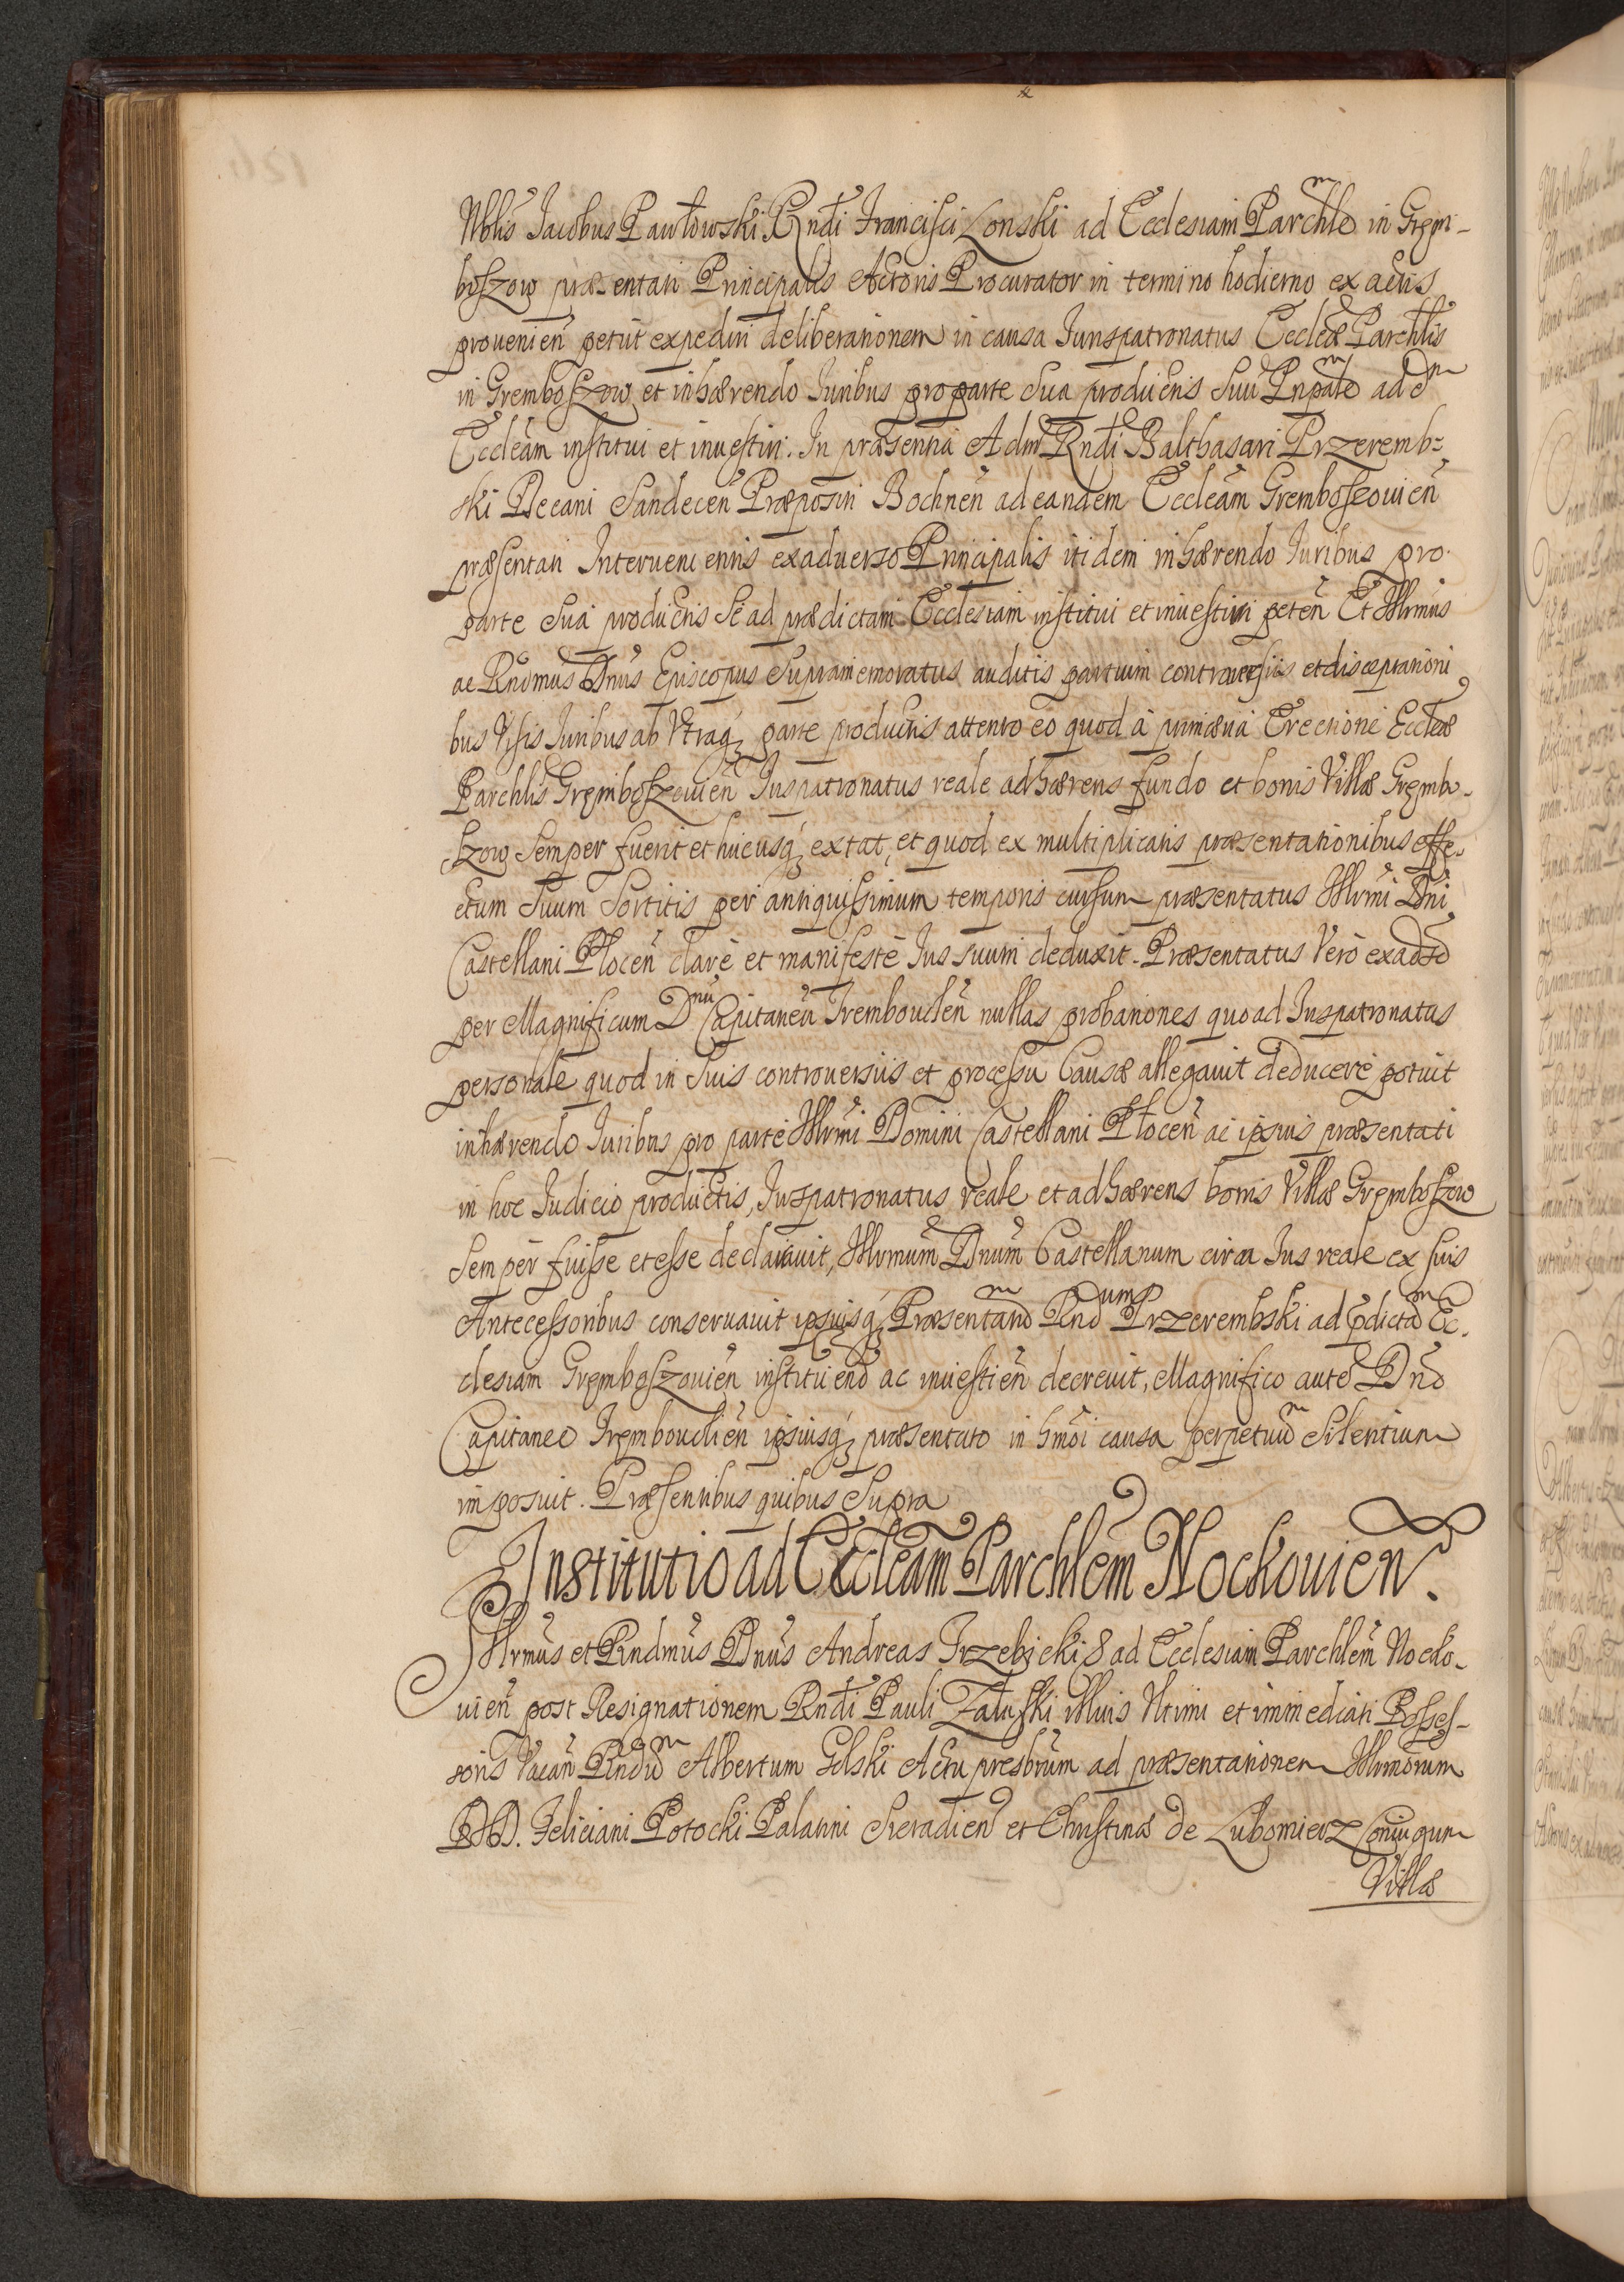 Nblis Jacobus Pawłowski Rndi Francisci Łonski ad Ecclesiam Parchle͠m in Gręm-
boszow præsentati Principalis Actoris Procurator in termino hodierno ex actis
prouenien̄ petiit expediri deliberationem in causa Jurispatronatus Ecclæ Parchlis
in Gremboszow, et inhærendo Juribus pro parte Sua productis Suu͠ Prnpale͠m ad d͠m
Eccleam institui et inuestiri. In præsentia Adm̃ Rndi Balthasari Przeremb-
ski Decani Sandecen̄ Præpositi Bochnen̄ ad eandem Eccleam Gremboszouien̄
præsentati Interuenientis ex aduerso Principalis itidem inhærendo Juribus pro
parte Sua productis Se ad prædictam Ecclesiam institui et inuestiri peten̄ Et Illrmus
ac Rndmus Dnus Episcopus Supramemoratus auditis partium controuersiis et disceptationi
bus Visis Juribus ab Vtraq; parte productis attento eo quod a primæua Erectione Ecclæ
Parchlis Gręmboszouien̄ Juspatronatus reale adhærens fundo et bonis Villæ Gręmbo-
szow Semper fuerit et hucusq; extat, et quod ex multiplicatis præsentationibus effe-
ctum Suum Sortitis per antiquissimum temporis cursum præsentatus Illrmi Dni
Castellani Plocen̄ clarè et manifestè Jus suum deduxit. Præsentatus Vero ex adso
per Magnificum Dnu͠ Capitaneu͠ Trembouclen̄ nullas probationes quoad Juspatronatus
personale quod in Suis controuersiis et processu Causæ allegauit deducere potuit
inhærendo Juribus pro parte Illrmi Domini Castellani Plocen̄ ac ipsius præsentati
in hoc Judicio productis, Juspatronatus reale et adhærens bonis Villæ Gręmboszow
Semper fuisse et esse declarauit, Illrmum Dnum Castellanum circa Jus reale ex suis
Antecessoribus conseruauit ipsiusq; Præsentatu͠m Rndum Przerembski ad pdicta͠m Ec-
clesiam Gręmboszouien̄ instituend̄ ac inuestien̄ decreuit, Magnifico aute͠ Dno
Capitaneo Tręmbouclien̄ ipsiusq; præsentato in hmoi causa perpetuu͠m Silentium
imposuit. Præsentibus quibus Supra
Institutio ad Eccleam Parchlem Nockouien.
Illrmus et Rndmus Dnus Andreas Trzebicki & ad Ecclesiam Parchlem Nocko-
uien̄ post Resignationem Rndi Pauli Załuski illius Vltimi et immediati Posses-
soris Vacan̄ Rndu͠m Albertum Golski Actu presbrum ad præsentationem Illrmorum
DD. Feliciani Potocki Palatini Sieradien̄ et Christinæ de Lubomierz Coniugum
Villæ